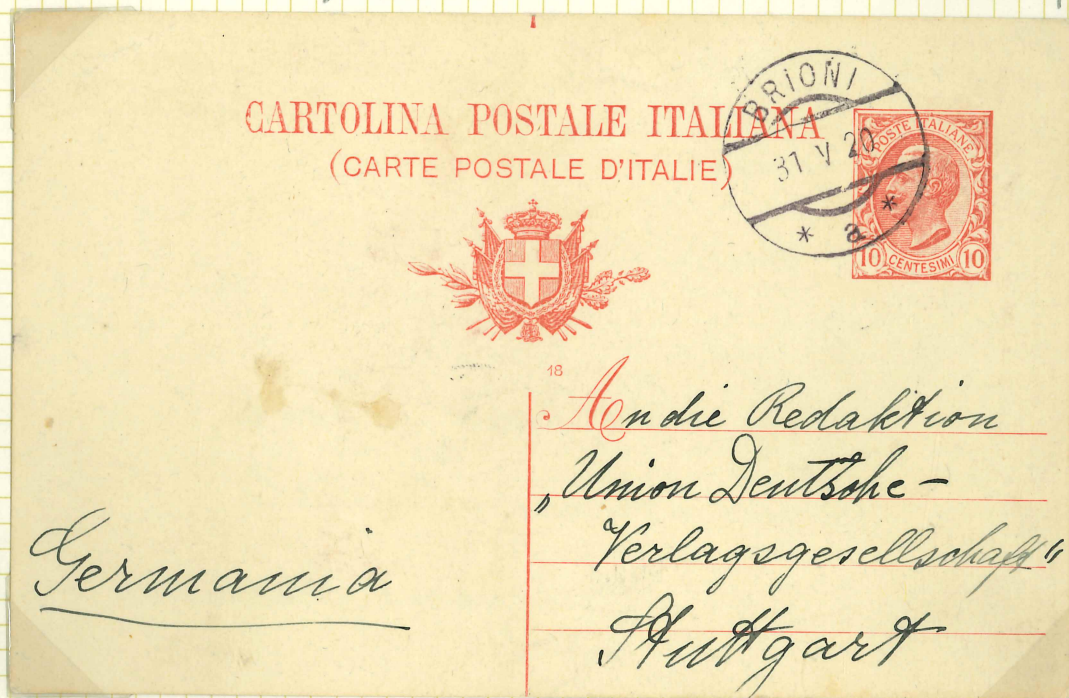 CARTOLINA POSTALE ITALIANA
(CARTE POSTALE D'ITALIE)
BRIONI
31 V 20
* a *
POSTE ITALIANE
10 CENTESIMI 10
18
An die Redaktion
„Union Deutsche-
Verlagsgesellschaft“
Stuttgart
Germania